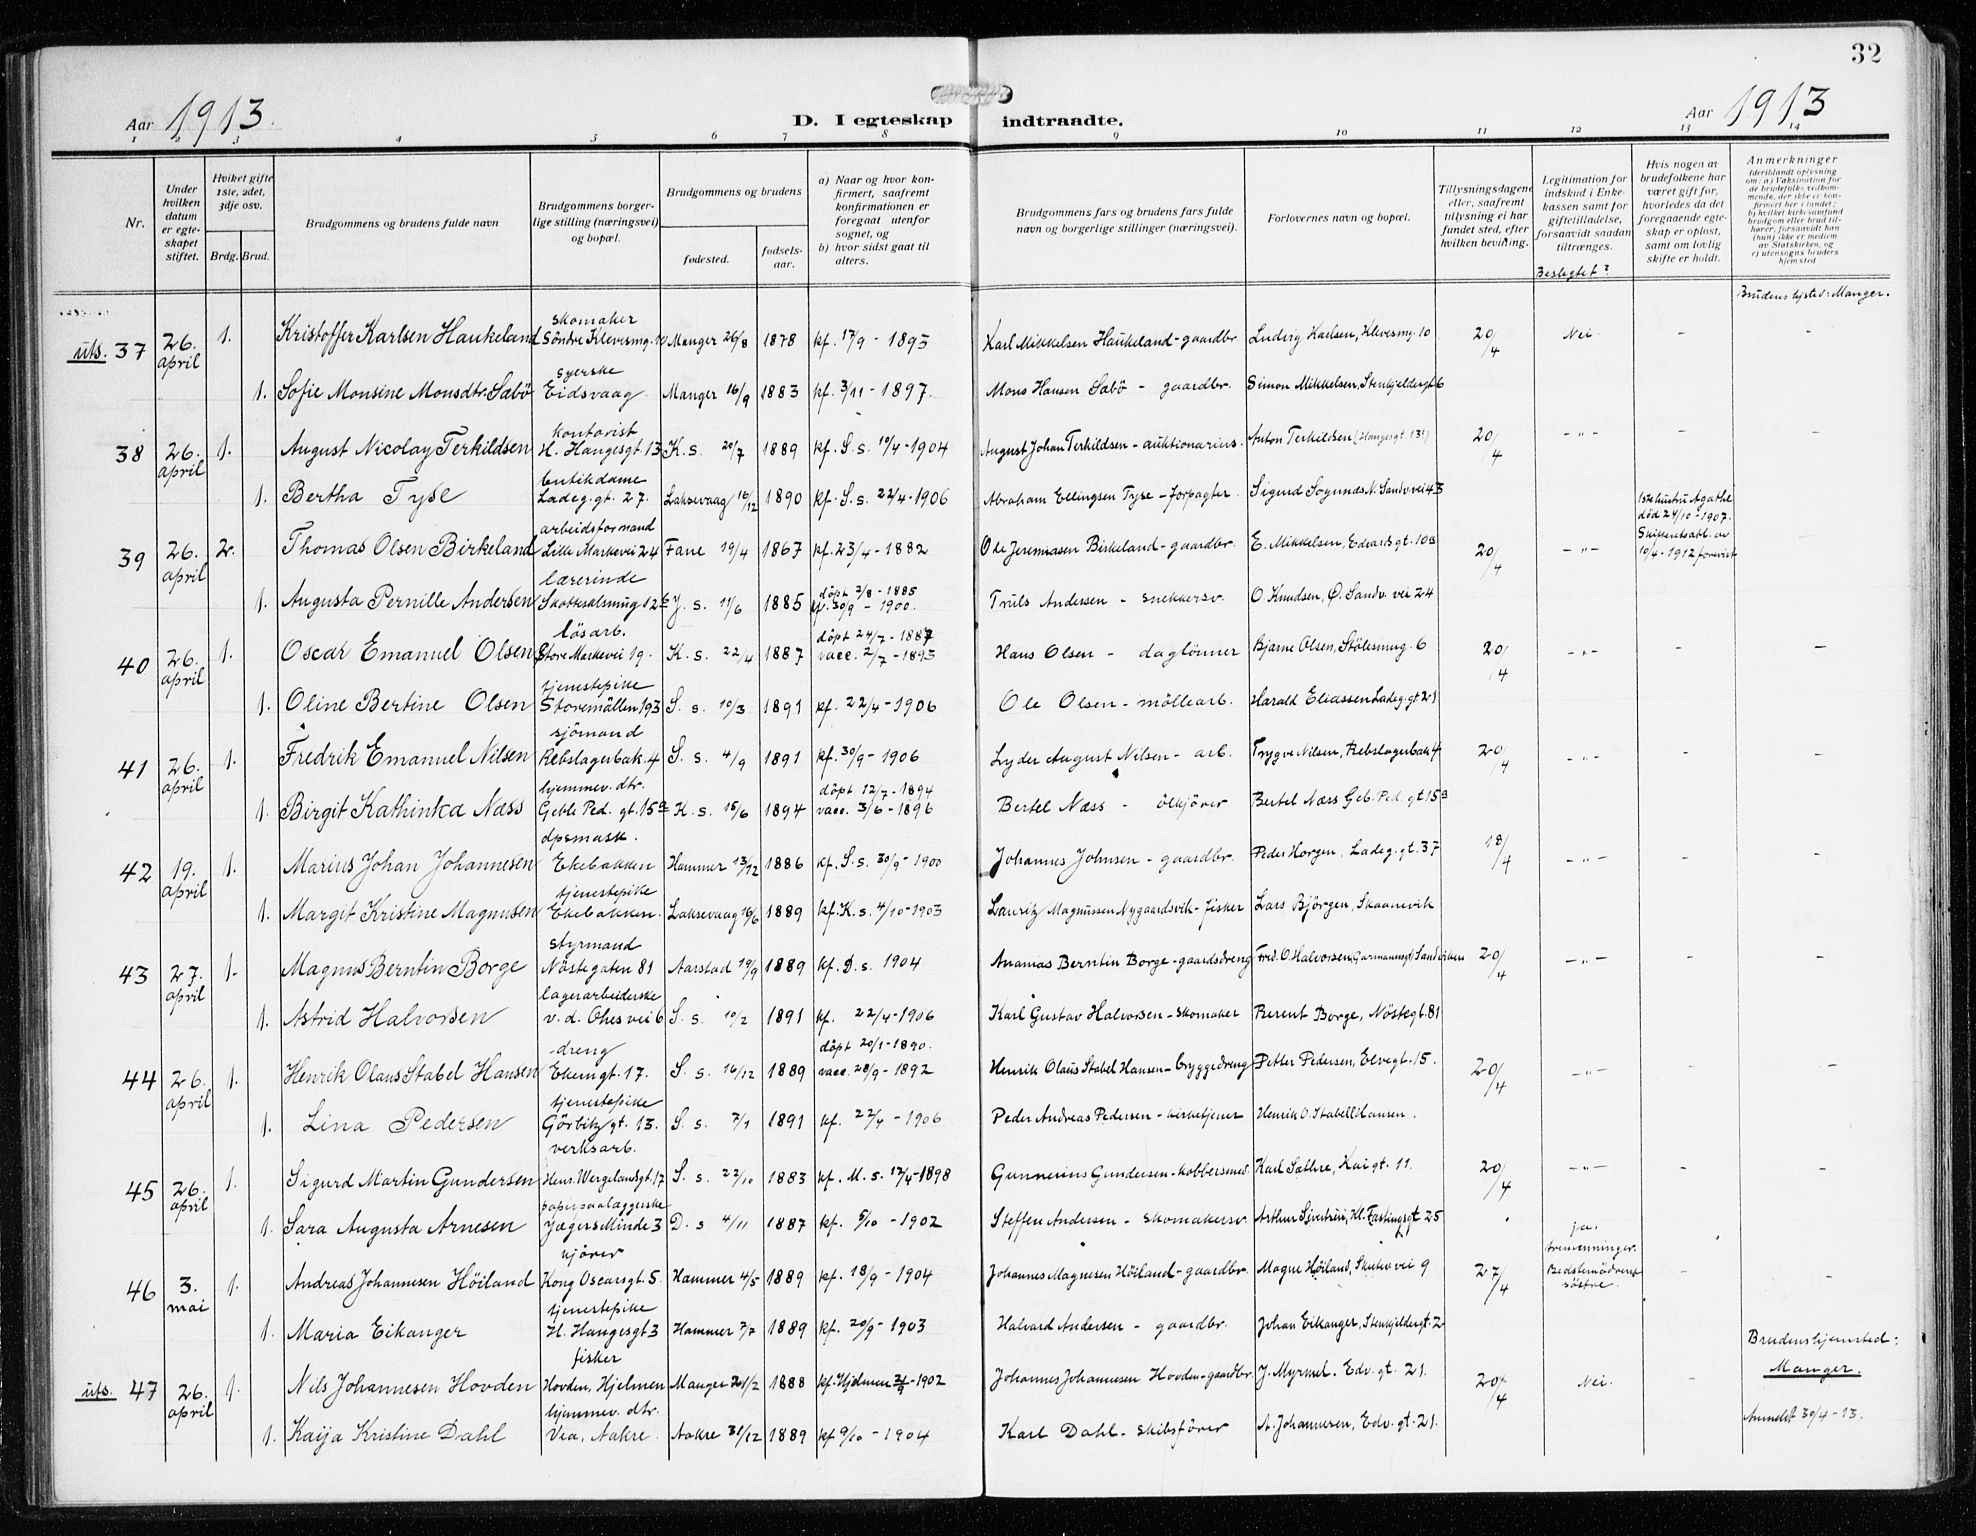 32
Aar 1913.
D. I egteskap indtraadte.
Aar 1913
1 2 3 4 5 6 7 8 9 10 11 12 13 14
Nr.
Under hvilken datum er egteskapet stiftet.
Hviket gifte 1ste, 2det, 3dje osv.
Brdg. Brud.
Brudgommens og brudens fulde navn
Brudgommens borgerlige stilling (næringsvei) og bopæl.
Brudgommens og brudens
fødested.
fødselsaar.
a) Naar og hvor konfirmert, saafremt konfirmationen er foregaat utenfor sognet, og
b) hvor sidst gaat til alters.
Brudgommens fars og brudens fars fulde navn og borgerlige stillinger (næringsvei).
Forlovernes navn og bopæl.
Tillysningsdagene eller, saafremt tillysning ei har fundet sted, efter hvilken bevilling.
Legitimation for indskud i Enkekassen samt for giftetilladelse, forsaavidt saadan tiltrænges.
Beslegtet?
Hvis nogen av brudefolkene har været gift før, hvorledes da det foregaaende egteskap er opløst, samt om lovlig skifte er holdt.
Anmerkninger (deriblandt oplysning om: a) Vaksination for de brudefolks vedkommende, der ikke er konfirmert her i landet; b) hvilket kirkesamfund brudgom eller brud tilhører, forsaavidt han (hun) ikke er medlem av Statskirken, og c) utensogns bruders hjemsted
Brudens hjsted: Manger.
uts. 37 26. april 1. Kristoffer Karlsen Haukeland skomaker Söndre Klevesmg. 10 Manger 26/8 1878 kf. 17/9 - 1893 Karl Mikkelsen Haukeland - gaardbr. Ludvig Karlsen, Klevesmg. 10 20/4 Nei. - -
1. Sofie Monsine Monsdtr. Sæbö syerske Eidsvaag Manger 16/9 1883 kf. 3/11 - 1897. Mons Hansen Sæbö - gaardbr. Simon Mikkelsen, Stenkjeldergt. 6
38 26. april 1. August Nicolay Terkildsen kontorist H. Haugesgt. 13 K. s. 20/7 1889 kf. S. s. 10/4 - 1904 August Johan Terkildsen - auktionarius. Anton Terkildsen (Haugesgt. 13) 20/4 -"- - -
1. Bertha Tyse butikdame Ladeg. gt. 27. Laksevaag 16/12 1890 kf. S. s. 22/4 - 1906 Abraham Ellingsen Tyse - forpagter. Sigurd Sognnæs N. Sandv. vei 43
39 26. april 2. Thomas Olsen Birkeland arbeidsformand Lille Markevei 24 Fane 19/4 1867 kf. 23/4 - 1882 Ole Jeremiasen Birkeland - gaardbr. E. Mikkelsen, Edvardsgt. 10a 20/4 -"- 1ste hustru Agathe död 24/10 - 1907. Skifteretsatt. av 10/4 - 1912 forevist -
1. Augusta Pernille Andersen lærerinde Skottesalsmug 12b J. s. 11/6 1885 döpt 3/8 - 1885 kf. 30/9 - 1900. Truls Andersen - snekkersv. O. Knudsen, Ø. Sandv. vei 24
40 26. april 1. Oscar Emanuel Olsen lösarb. Store Markevei 19. K. s. 22/4 1887 döpt 24/7 - 1887 vacc. 2/7 - 1893 Hans Olsen - daglönner Bjarne Olsen, Stölesmug. 6 20/4 -"- - -
1. Oline Bertine Olsen tjenestepike Storemöllen 193 S. s. 10/3 1891 kf. 22/4 - 1906 Ole Olsen - möllearb. Harald Eliassen Ladeg. gt 21
41 26. april 1. Fredrik Emanuel Nilsen sjömand Rebslagerbak. 4 S. s. 4/9 1891 kf. 30/9 - 1906 Lyder August Nilsen - arb. Trygve Nilsen, Rebslagerbak 4 20/4 -"- - -
1. Birgit Kathinka Næss hjemmev. dtr. Geble Ped. gt. 15a K. s. 15/6 1894 döpt 12/7 - 1894 vacc. 3/6 - 1896 Bertel Næss - ölkjörer Bertel Næss Geb. Ped. gt 15a
42 19. april 1. Marius Johan Johannesen dpsmask. Ekebakken Hammer 13/12 1886 kf. S. s. 30/9 - 1900 Johannes Johnsen - gaardbr. Peder Horgen, Ladeg. gt. 37 18/4 -"- - -
1. Margit Kristine Magnusen tjenestepike Ekebakken. Laksevaag 16/6 1889 kf. K. s. 4/10 - 1903 Lauritz Magnussen Nygaardsvik - fisker Lars Björgen, Skaanevik
43 27. april 1. Magnus Berntin Borge styrmand Nöstegaten 81 Aarstad 19/9 1889 kf. D. s. 1904 Ananias Berntin Borge - gaardsdreng Fred. O. Halvorsen, Garmannsgt, Sandviken 20/4 -"- - -
1. Astrid Halvorsen lagerarbeiderske v. d. Ohes vei 6 S. s. 10/2 1891 kf. 22/4 - 1906 Karl Gustav Halvorsen - skomaker Berent Borge, Nöstegt. 81
44 26. april 1. Henrik Olaus Stabel Hansen dreng Ekerngt. 17. S. s. 16/12 1889 döpt 20/1 - 1890. vacc. 28/9 - 1892 Henrik Olaus Stabel Hansen - bryggedreng Petter Pedersen, Elvegt. 15. 20/4 -"- - -
1. Lina Pedersen tjenestepike Görbitz gt. 13. S. s. 7/1 1891 kf. 22/4 - 1906 Peder Andreas Pedersen - kirketjener Henrik O Stabell Hansen.
45 26. april 1. Sigurd Martin Gundersen verksarb. Henr. Wergelandsgt. 17 S. s. 22/10 1883 kf. M. s. 17/4 - 1898 Gunnerius Gundersen - kobbersmed. Karl Sæthre, Kaigt. 11. 20/4 -"- - -
1. Sara Augusta Arnesen papirsaalæggerske Jægers Minde 3 D. s 4/11 1887 kf. 5/10 - 1902 Steffen Andersen - skomakersv. Arthur Sivertsen, Kl. Fastingsgt 25
46 3. mai 1. Andreas Johannesen Höiland kjörer Kong Oscarsgt. 5. Hammer 4/5 1889 kf. 18/9 - 1904 Johannes Magnesen Höiland - gaardbr. Magne Höiland, Skutev vei 9 27/4 ja. tremenninger. Bedstemödrene söstre. - -
1. Maria Eikanger tjenestepike H. Haugesgt 3 Hammer 7/7 1889 kf. 20/9 - 1903 Halvard Andersen - gaardbr. Johan Eikanger, Stenkjeldergt. 2
uts. 47 26. april 1. Nils Johannesen Hovden fisker Hovden, Hjelmen Manger 20/2 1888 kf. Hjelmen 21/9 - 1902 Johannes Johannesen Hovden - gaardbr J. Myrmel. Edv. gt. 21. 20/4 Nei. - Brudens hjemsted: Manger.
1. Kaija Kristine Dahl hjemmev. dtr. Vea, Aakre. Aakre 31/12 1889 kf 9/10 - 1904 Karl Dahl - skibsförer A. Johannesen, Edv. gt. 21. Anmeldt 30/4 - 13.